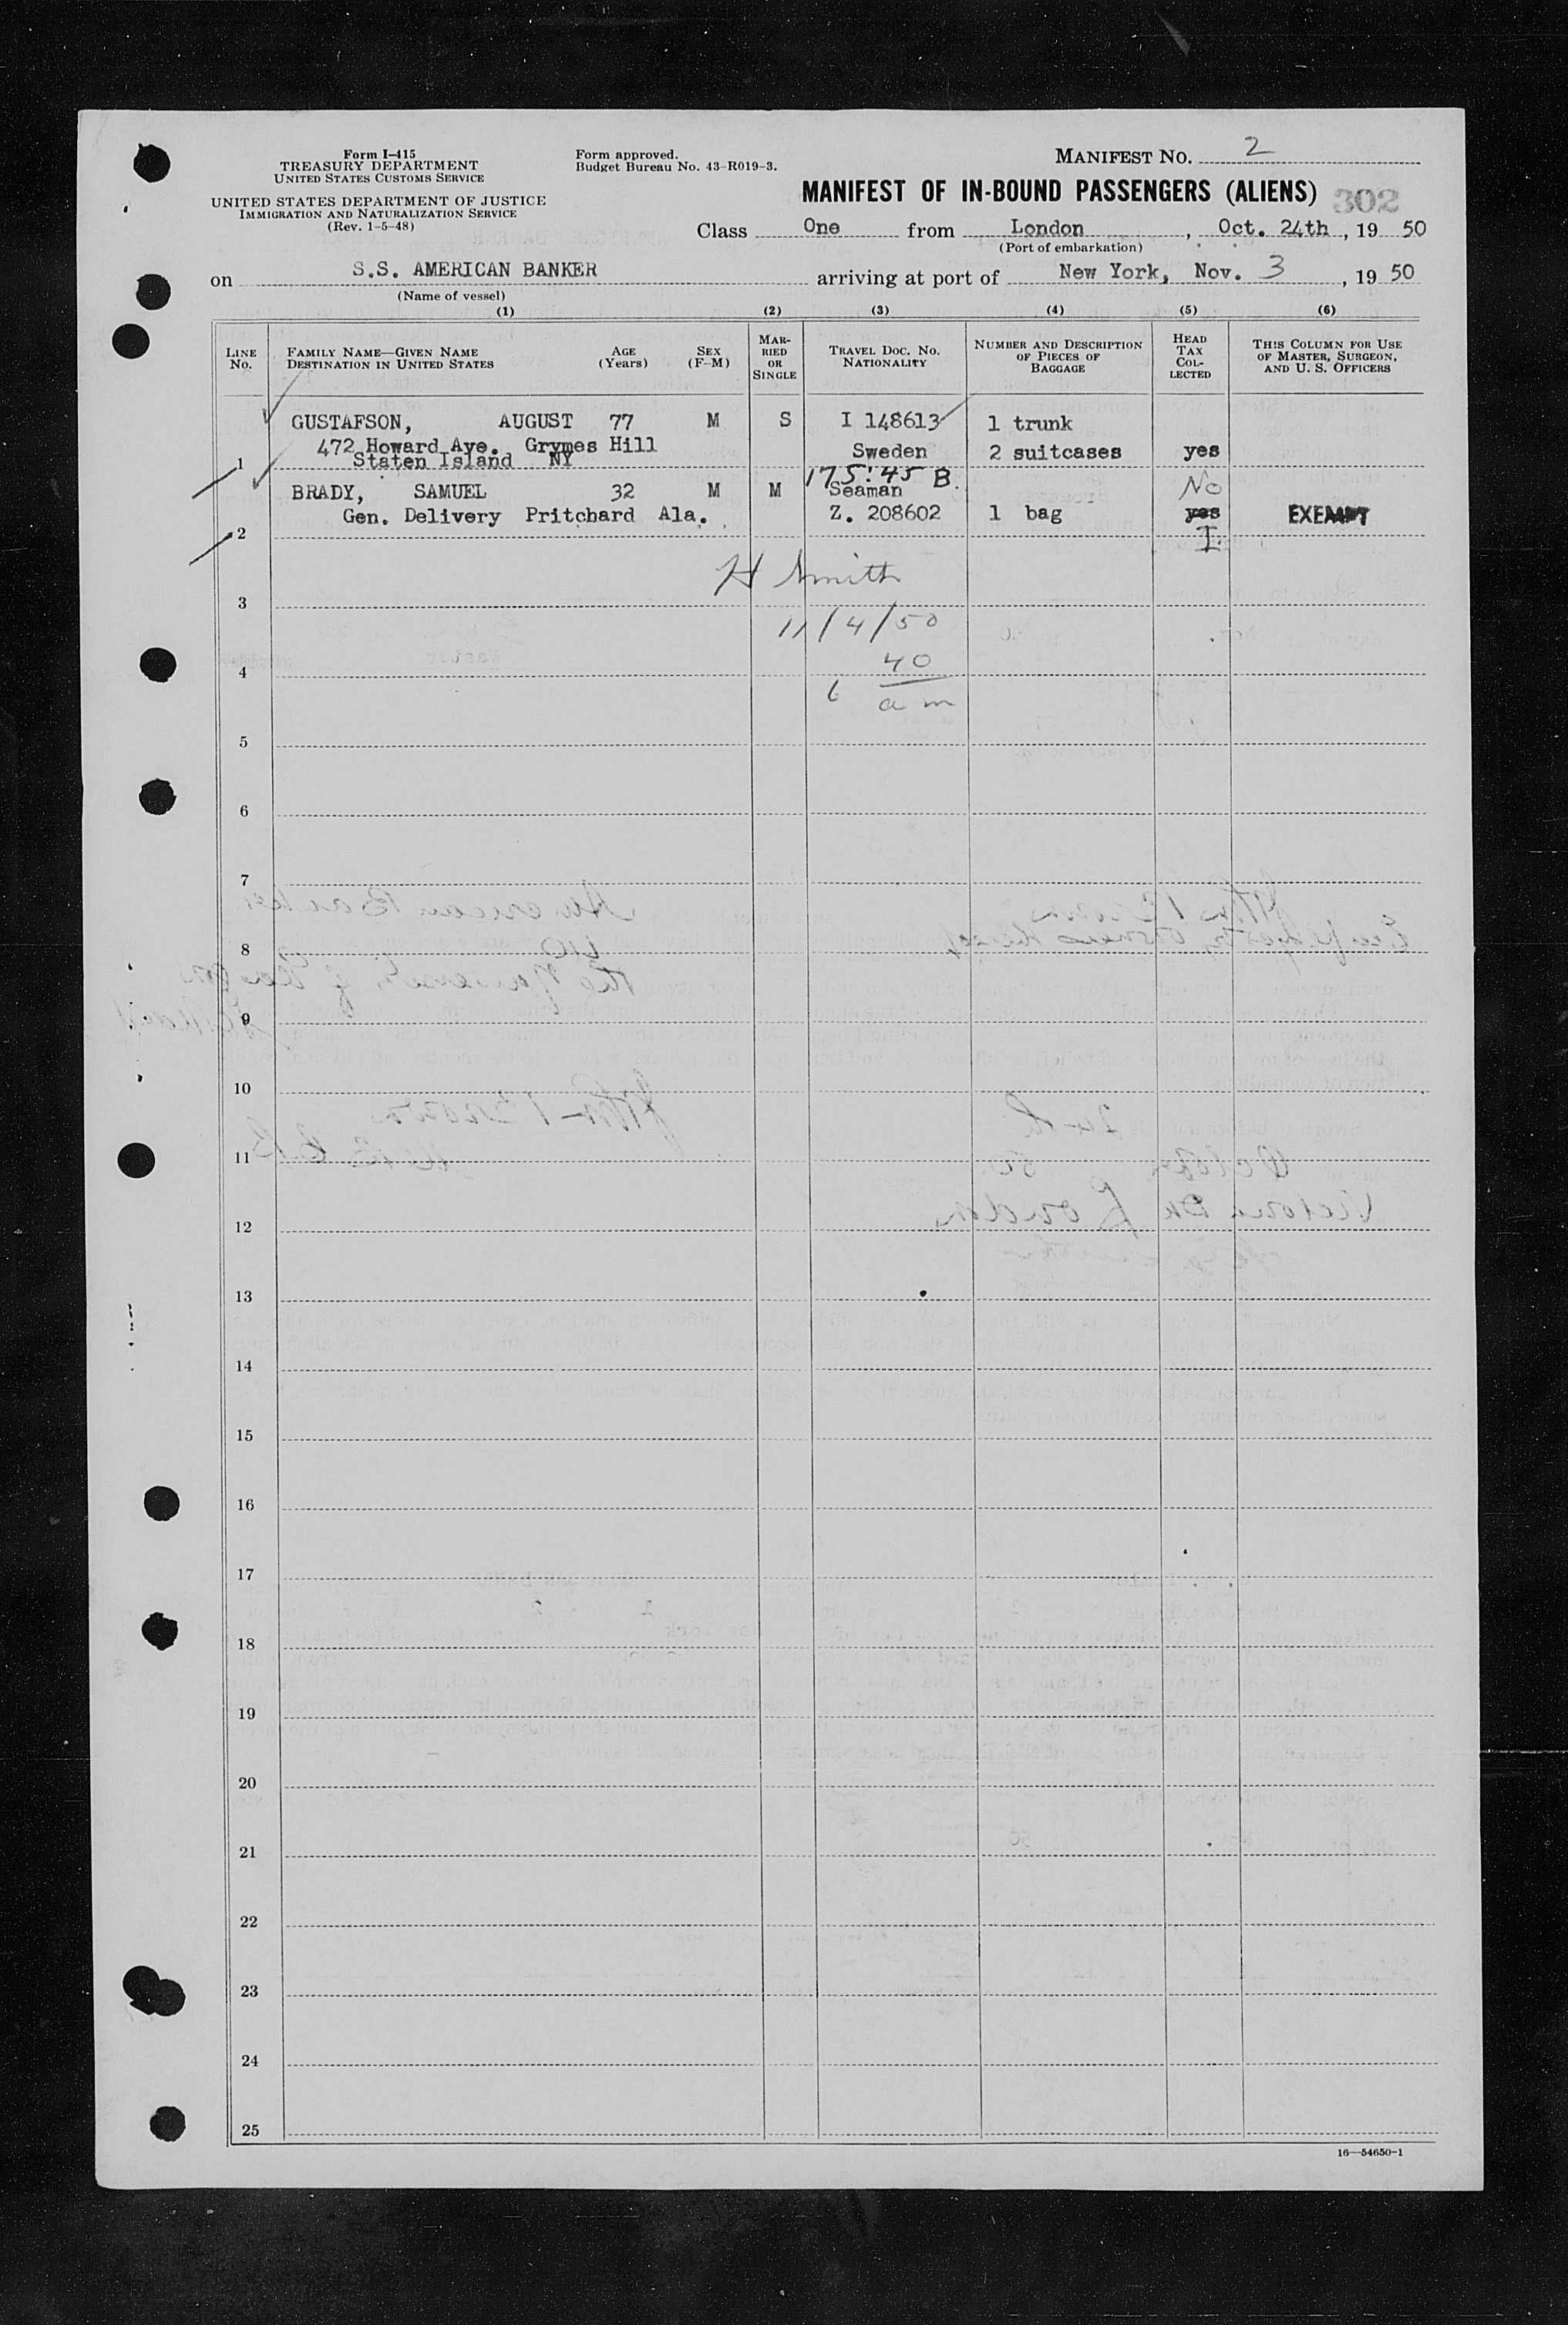 Form I-415
TREASURY DEPARTMENT
UNITED STATES CUSTOMS SERVICE
UNITED STATES DEPARTMENT OF JUSTICE
IMMIGRATION AND NATURALIZATION SERVICE
(Rev. 1-5-48)
Form approved.
Budget Bureau No. 43-R019-3.
MANIFEST NO. 2
MANIFEST OF IN-BOUND PASSENGERS (ALIENS) 302
Class One from London, Oct. 24th, 19 50
(Port of embarkation)
on S.S. AMERICAN BANKER arriving at port of New York, Nov. 3, 19 50
(Name of vessel)
(1) (2) (3) (4) (5) (6)
LINE No. FAMILY NAME—GIVEN NAME DESTINATION IN UNITED STATES AGE (Years) SEX (F-M) MARRIED OR SINGLE TRAVEL DOC. NO. NATIONALITY NUMBER AND DESCRIPTION OF PIECES OF BAGGAGE HEAD TAX COLLECTED THIS COLUMN FOR USE OF MASTER, SURGEON, AND U. S. OFFICERS
GUSTAFSON, AUGUST 77 M S I 148613 1 trunk
472 Howard Ave. Grymes Hill Sweden 2 suitcases yes
1 Staten Island NY
175:45 B.
BRADY, SAMUEL 32 M M Seaman No
Gen. Delivery Pritchard Ala. Z. 208602 1 bag yes EXEMPT
2 I.
H Smith
3
11/4/50
4 40
6 am
5
6
7
8
9
10
11
12
13
14
15
16
17
18
19
20
21
22
23
24
25
16—54650-1